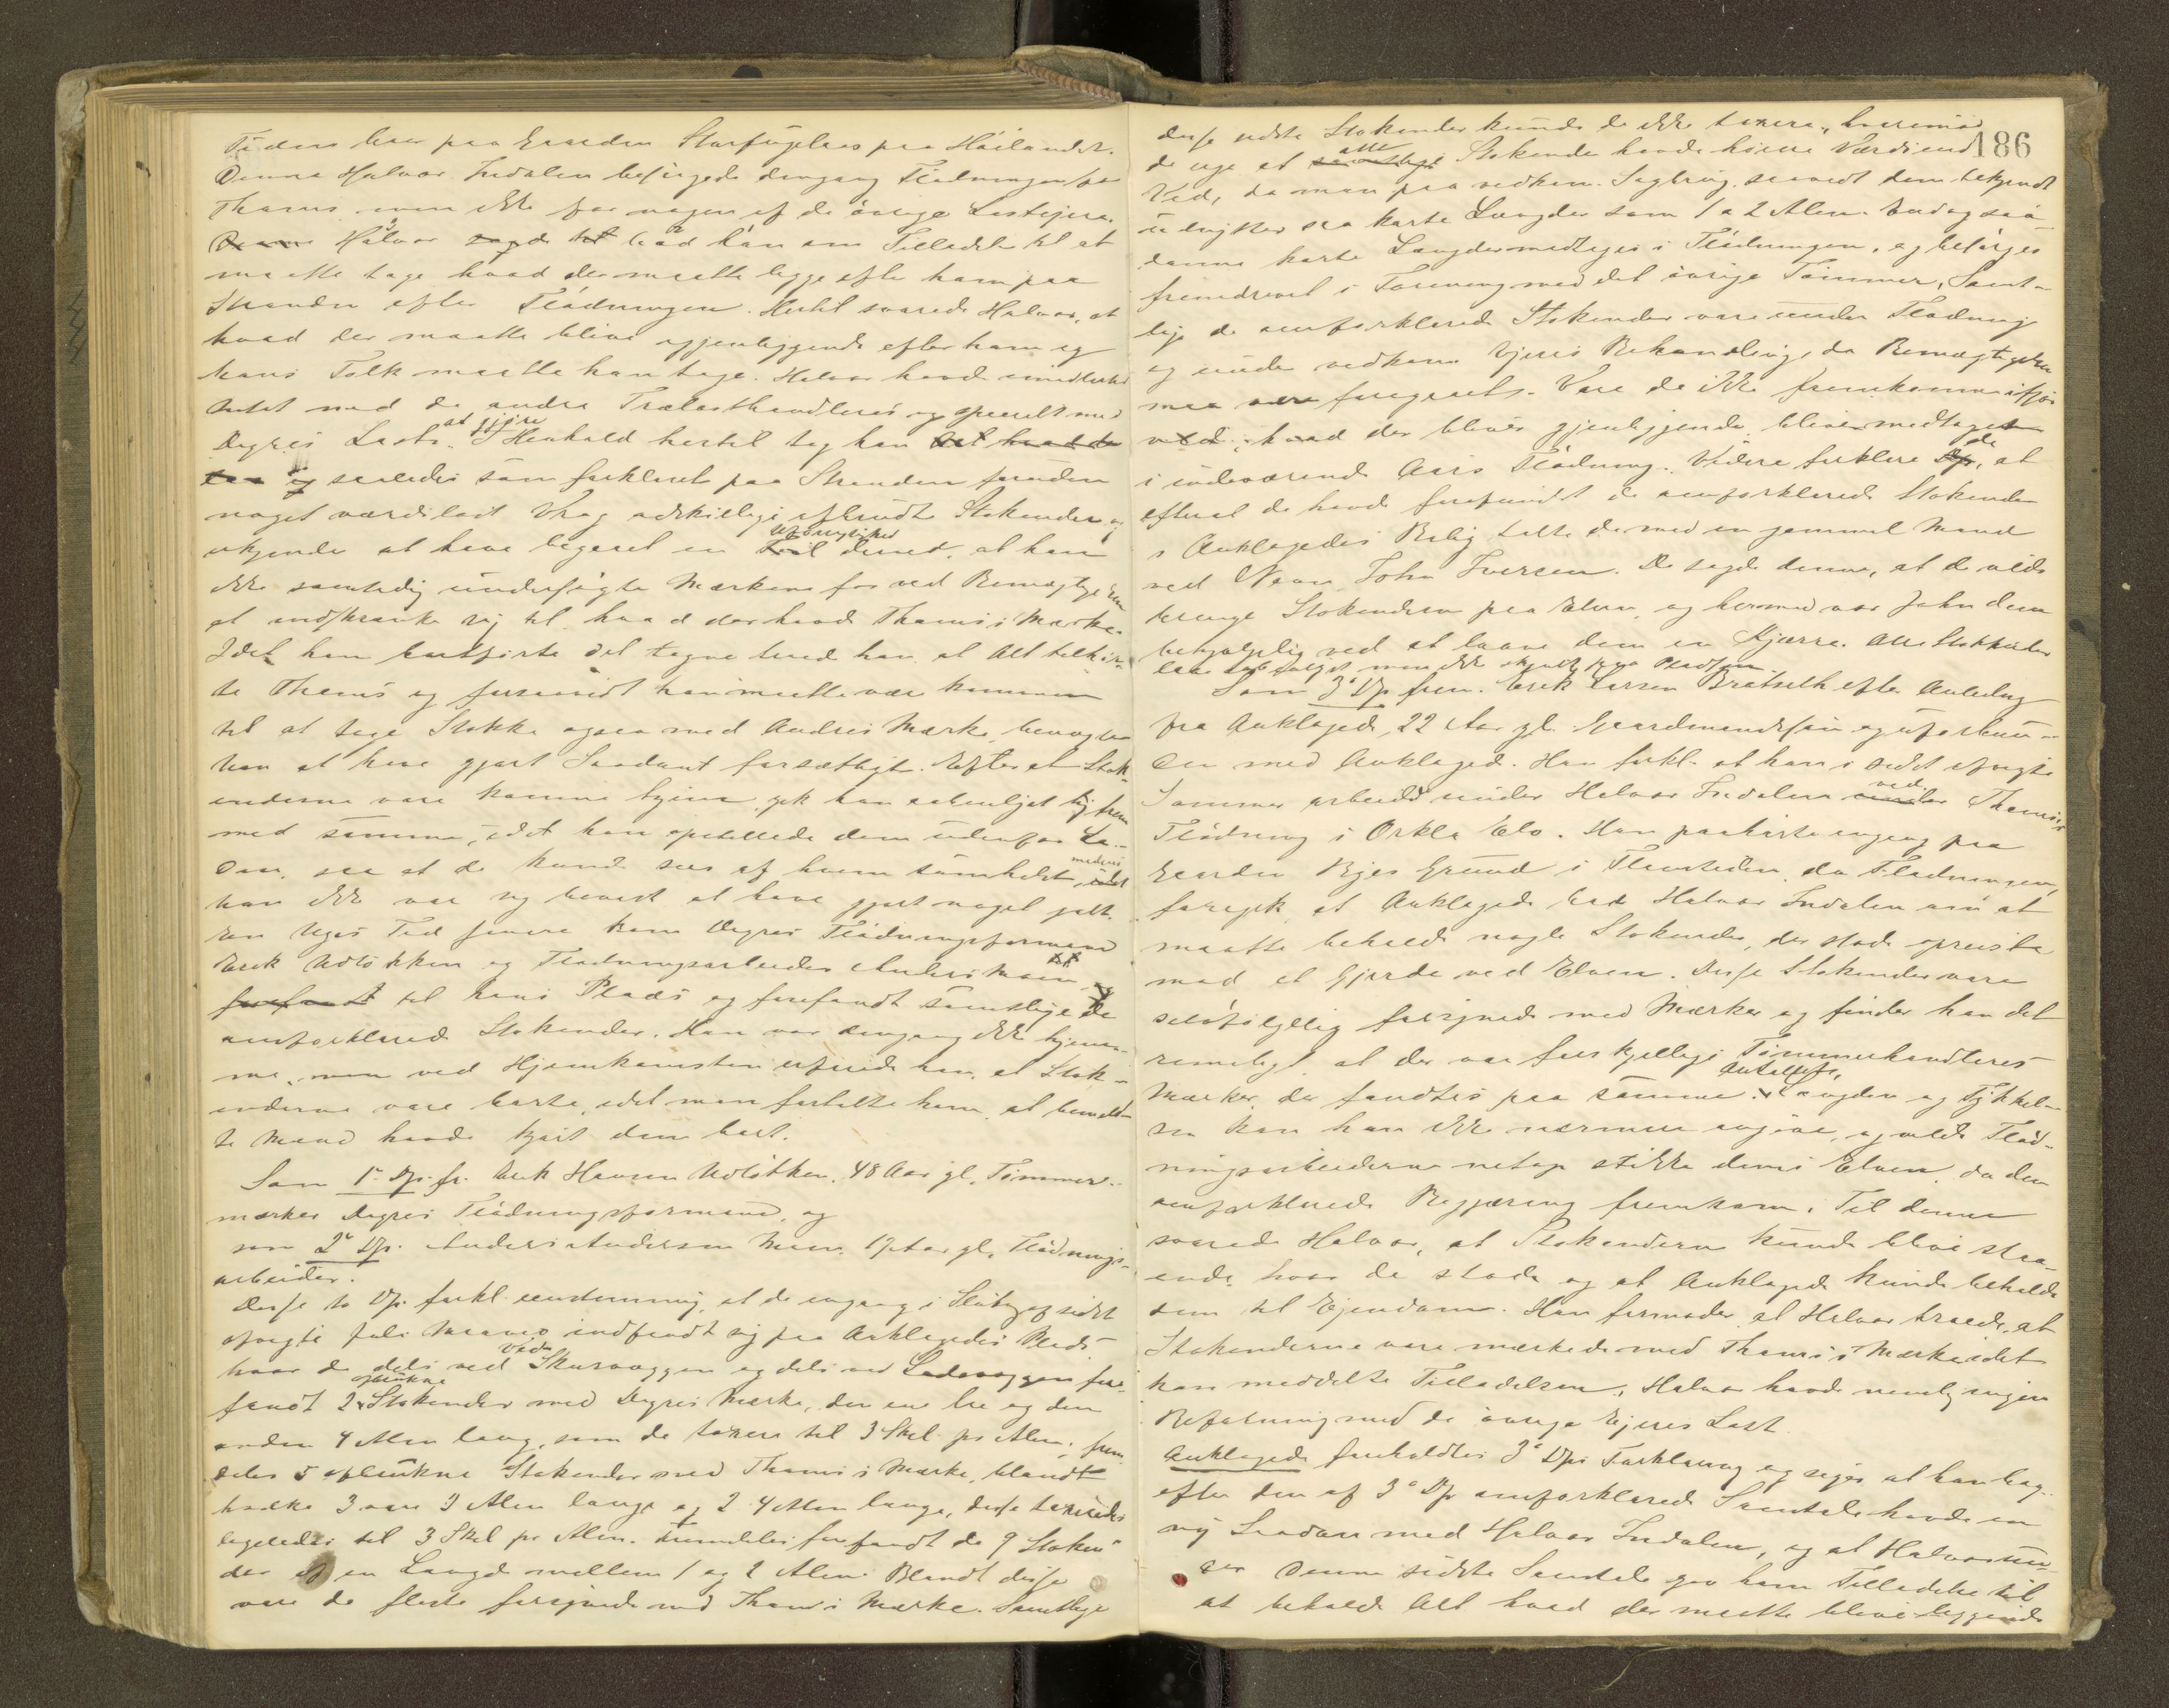 Tiden boer paa Gaarden Storfuglaas paa Höilandet.
Denne Halvor Indalen besörgede dengang Flödningen for
Thams men ikke for nogen af de övrige Lastejere.
Denne Halvor sagde at bad han om Tilladelse til at
maatte tage hvad der maatte ligge efter ham paa
Stranden efter Flödningen. Hertil svarede Halvor, at
hvad der maatte blive igjenliggende efter ham og
hans Folk maatte han tage. Halvor havde imidlertid
Intet med de andre Trælasthandleres og specielt med
Dygres Last at gjöre. I Henhold hertil tog han det hvad der
og saaledes som forklaret paa Stranden foruden
noget værdilöst Vrag adskillige afbrudte Stokender og
erkjender at have begaaet en Feil Uforsigtighed derved, at han
ikke samtidig undersögte Mærkerne for ved Bemægtigelsen
at indskrænke sig til hvad der havde Thams's Mærke.
Idet han bortförte det tagne troede han at Alt tilhör-
te Thams og forsaavidt han maatte være kommen
til at tage Stokke ogsaa med Andres Mærke, benægter
han at have gjort Saadant forsætligt. Efterat Stok-
enderne vare komne hjem gik han aabenlyst frem
med samme, idet han opstillede dem udenfor La-
den, saa at de kunde sees af hvem somhelst, idet medens
han ikke var sig bevidst at have gjort noget galt.
En Uges Tid senere kom Dygres Flödningsformand
Erik Udlökken og Flödningsarbeider Anders Moen og
forefandt til hans Plads og forefandt samtlige de
omforklarede Stokender. Han var dengang ikke hjem-
me, men ved Hjemkomsten erfarede han, at Stok-
enderne vare borte, idet man fortalte ham, at bemeldt-
te Mænd havde kjört dem bort.
Som 1ste Dp. fr. Erik Hansen Udlökken, 48 Aar gl., Tömmer-
mærker Dygres Flödningsformand, og
som 2det Dp. Anders Andersen Moen, 17 Aar gl., Flödnings-
arbeider.
Disse to Dp. forkl. eenstemmig, at de engang i Slutn. af sidst
afvigte Juli Maaned indfandt sig paa Anklagedes Plads
hvor de dels ved Vedskursvæggen og dels ved Ladevæggen fore-
fandt 2 afbrukne Stokender med Dygres Mærke, den ene tre og den
anden 4 Alen lang, som de taxere til 3 Skil. pr. Alen, frem-
deles 5 afbrukne Stokender med Thams's Mærke, blandt
hvilke 3 vare 3 Alen lange og 2 4 Alen lange, disse taxeredes
ligeledes til 3 Skil. pr. Alen. Fremdeles forefandt de 9 Stoken-
der af en Længde mellem 1 og 2 Alen. Blandt disse
vare de fleste forsynede med Thams's Mærke. Samtlige
186
disse sidste Stokender kunde de ikke taxere, hvorimod
de sige at samtlige alle Stokender havde höiere Værdi end
Ved, da man paa vedkom. Sagbrug, saavidt dem bekjendt
udnytter saa korte Længder som 1 a 2 Alen. Endog saa-
danne korte Længder medtages i Flödningen, og besörges
fremdrevet i Forening med det övrige Tömmer. Samt-
lige de omforklarede Stokender vare under Flödning
og under vedkom. Ejeres Behandling, da Bemægtigelsen
maa være foregaaet. Vare de ikke fremkomne ifjor
vilde, hvad der blives gjenliggende, blive medtaget
i indeværende Aars Flödning. Videre forklare Dp. de, at
efterat de havde forefundet de omforklarede Stokender
i Anklagedes Bolig talte de med en gammel Mand
ved Navn John Iversen. De sagde denne, at de vilde
bringe Stokenderne paa Elven, og hermed var John dem
behjælpelig ved at laane dem en Kjærre. Alle Stokkender
laae men ikke skjult paa Pladsen.
Som 3die Dp. frem. Erik Larsen Bratseth efter Anledng
fra Anklagede, 22 Aar gl. Gaardmandssön og uforbun-
den med Anklagede. Han forkl. at han i sidst afvigte
Sommer arbeidede under Halvor Indalen under ved Thams's
Flödning i Orkla Elv. Han paahörte engang paa
Gaarden Byes Grund i Flomtiden, da Flødningen
foregik, at Anklagede bad Halvor Indalen om at
maatte beholde nogle Stokender, der stode opreiste
mod et Gjerde ved Elven. Disse Stokender vare
selvfölgelig forsynede med Mærker og finder han det
rimeligt, at der var forskjellige Tömmerhandleres
Mærker, der fandtes paa samme. Antallet, Længden og Tykkel-
sen kan han ikke nærmere angive, og vilde Flöd-
ningsarbeiderne netop stikke dem i Elven, da den
omforklarede Begjæring fremkom. Til denne
svarede Halvor, at Stokenderne kunde blive staa-
ende hvor de stode og at Anklagede kunde beholde
dem til Ejendom. Han formoder at Halvor troede, at
Stokenderne vare mærkede med Thams's Mærke idet
han meddelte Tilladelsen. Halvor havde nemlig ingen
Befatning med de övrige Ejeres Last.
Anklagede foreholdtes 3die Dps Forklaring og siger at han bag-
efter den af 3die Dp. omforklarede Samtale havde en
ny Saadan med Halvor Indalen, og at Halvor un-
der denne sidste Samtale gav ham Tilladelse til
at beholde Alt hvad der maatte blive liggende